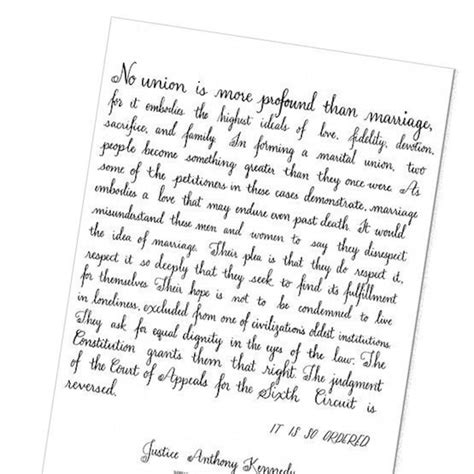 No union is more profound than marriage,
for it embodies the highest ideals of love, fidelity, devotion,
sacrifice, and family. In forming a marital union, two
people become something greater than they once were. As
some of the petitioners in these cases demonstrate, marriage
embodies a love that may endure even past death. It would
misunderstand these men and women to say they disrespect
the idea of marriage. Their plea is that they do respect it,
respect it so deeply that they seek to find its fulfillment
for themselves. Their hope is not to be condemned to live
in loneliness, excluded from one of civilization's oldest institutions.
They ask for equal dignity in the eyes of the law. The
Constitution grants them that right. The judgment
of the Court of Appeals for the Sixth Circuit is
reversed.
IT IS SO ORDERED
Justice Anthony Kennedy